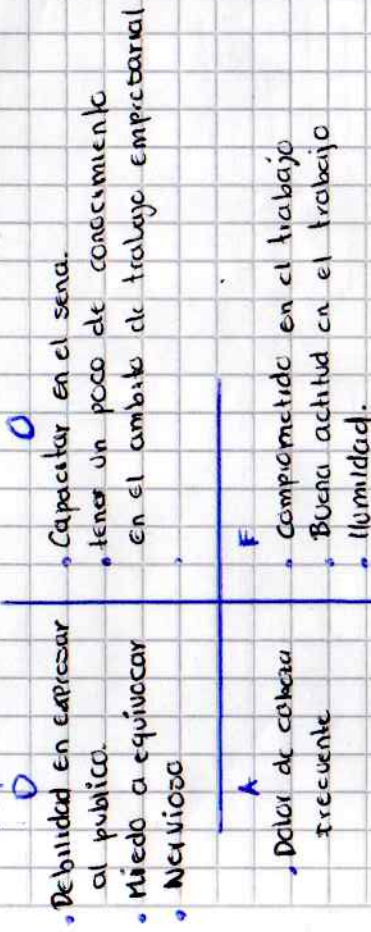 D
• Debilidad en expresar
al publico.
• Miedo a equivocar
• Nervioso
O
• Capacitar en el sena.
• tener un poco de conocimiento
en el ambito de trabajo empresarial
A
• Dolor de cabeza
frecuente
F
• Comprometido en el trabajo
• Buena actitud en el trabajo
• Humildad.